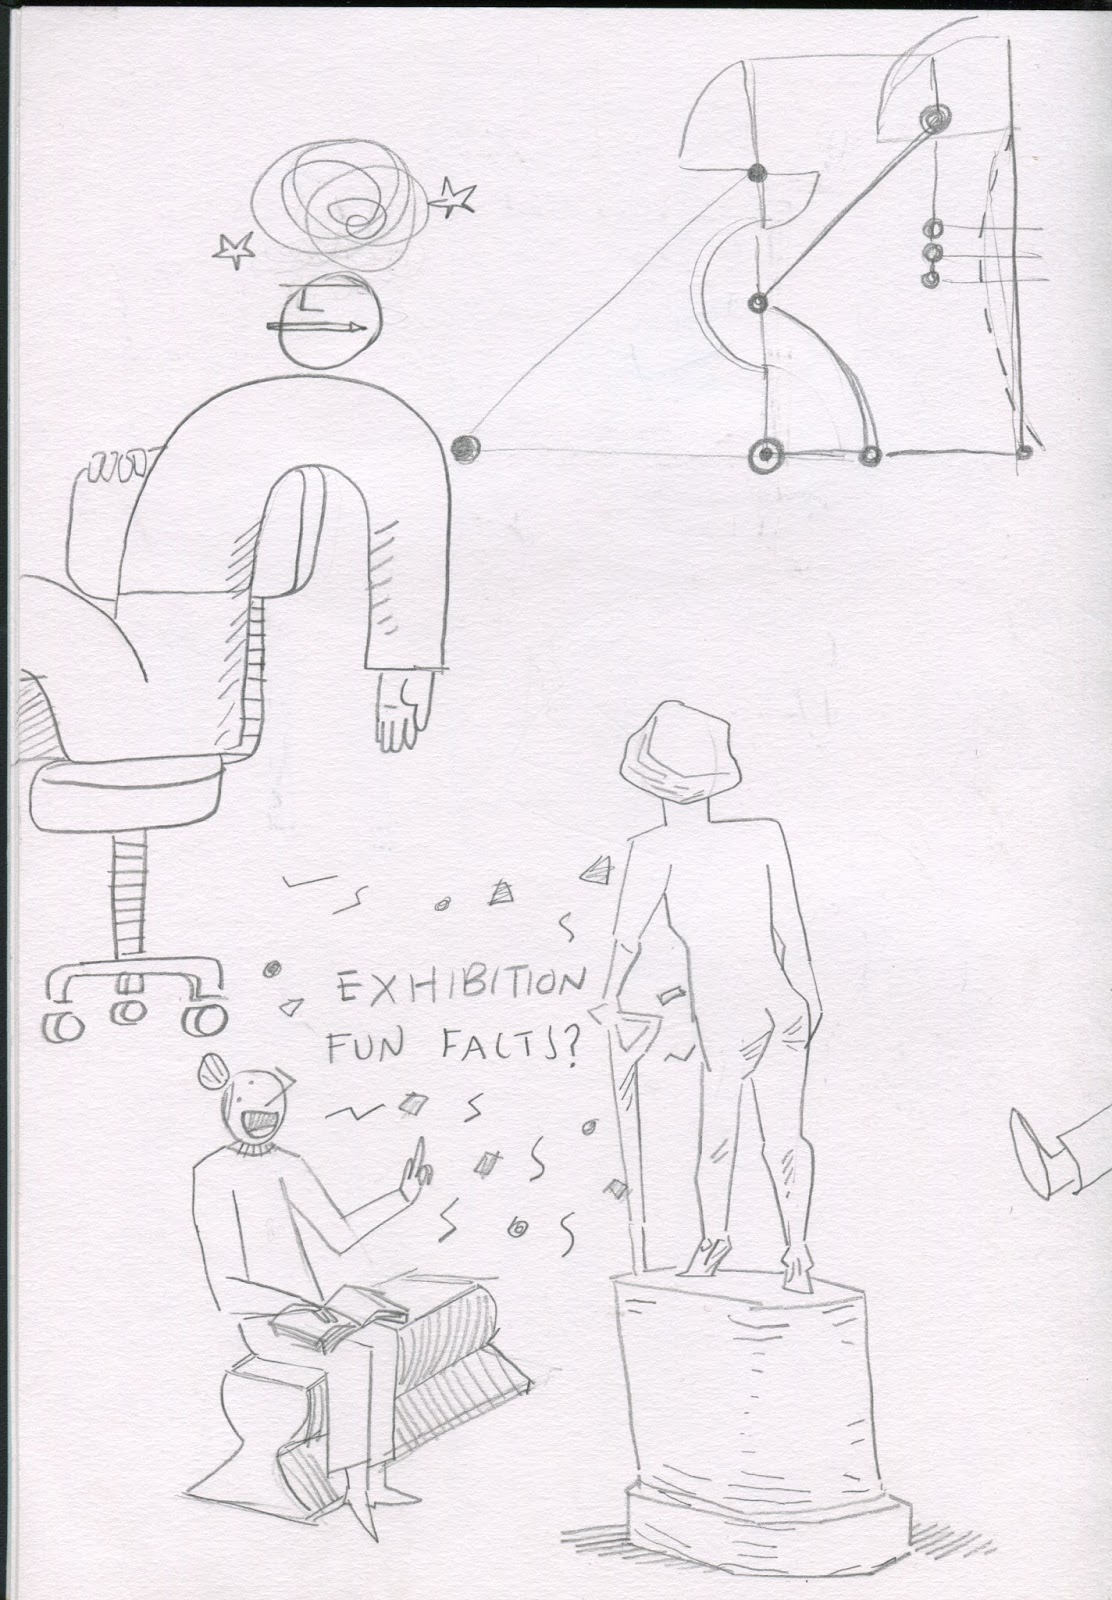 EXHIBITION
FUN FACTS?